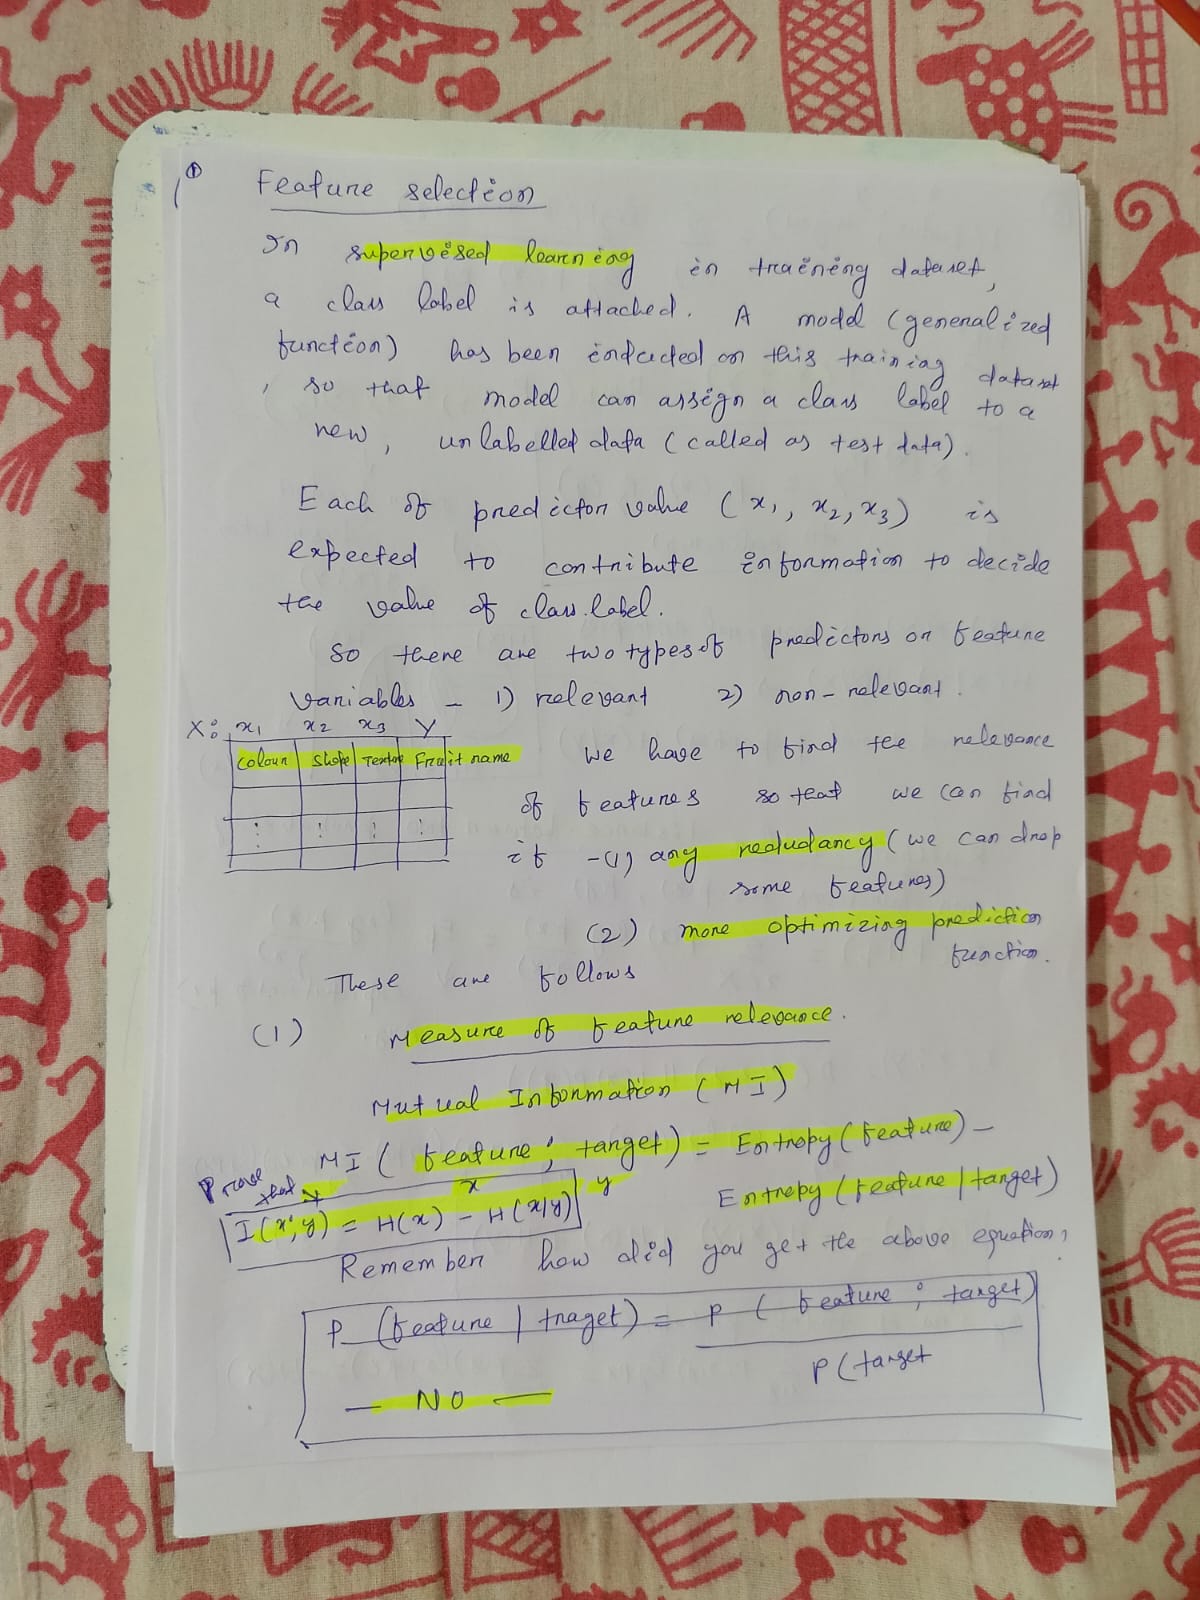 1
Feature selection
In supervised learning in training dataset,
a class label is attached. A model (generalized
function) has been inducted on this training dataset
, so that model can assign a class label to a
new, unlabelled data (called as test data).
Each of predictor value (x1, x2, x3) is
expected to contribute information to decide
the value of class label.
So there are two types of predictors or feature
variables – 1) relevant 2) non-relevant.
X: x1 x2 x3 Y
Colour Shape Texture Fruit name
We have to find the relevance
of features so that we can find
if -(1) any redudancy (we can drop
some features)
(2) more optimizing prediction
function.
These are follows
(1) Measure of feature relevance.
Mutual Information (MI)
MI (feature; target) = Entropy (feature) –
x y
Entropy (feature | target)
Prove that
I(x;y) = H(x) - H(x/y)
Remember how did you get the above equation,
P (feature | traget) = P (feature ; target)
P (target
— NO —